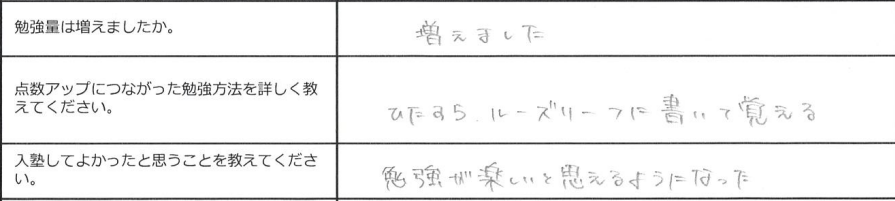 勉強量は増えましたか。
増えました
点数アップにつながった勉強方法を詳しく教
えてください。
ひたすら、ルーズリーフに書いて覚える
入塾してよかったと思うことを教えてくださ
い。
勉強が楽しいと思えるようになった